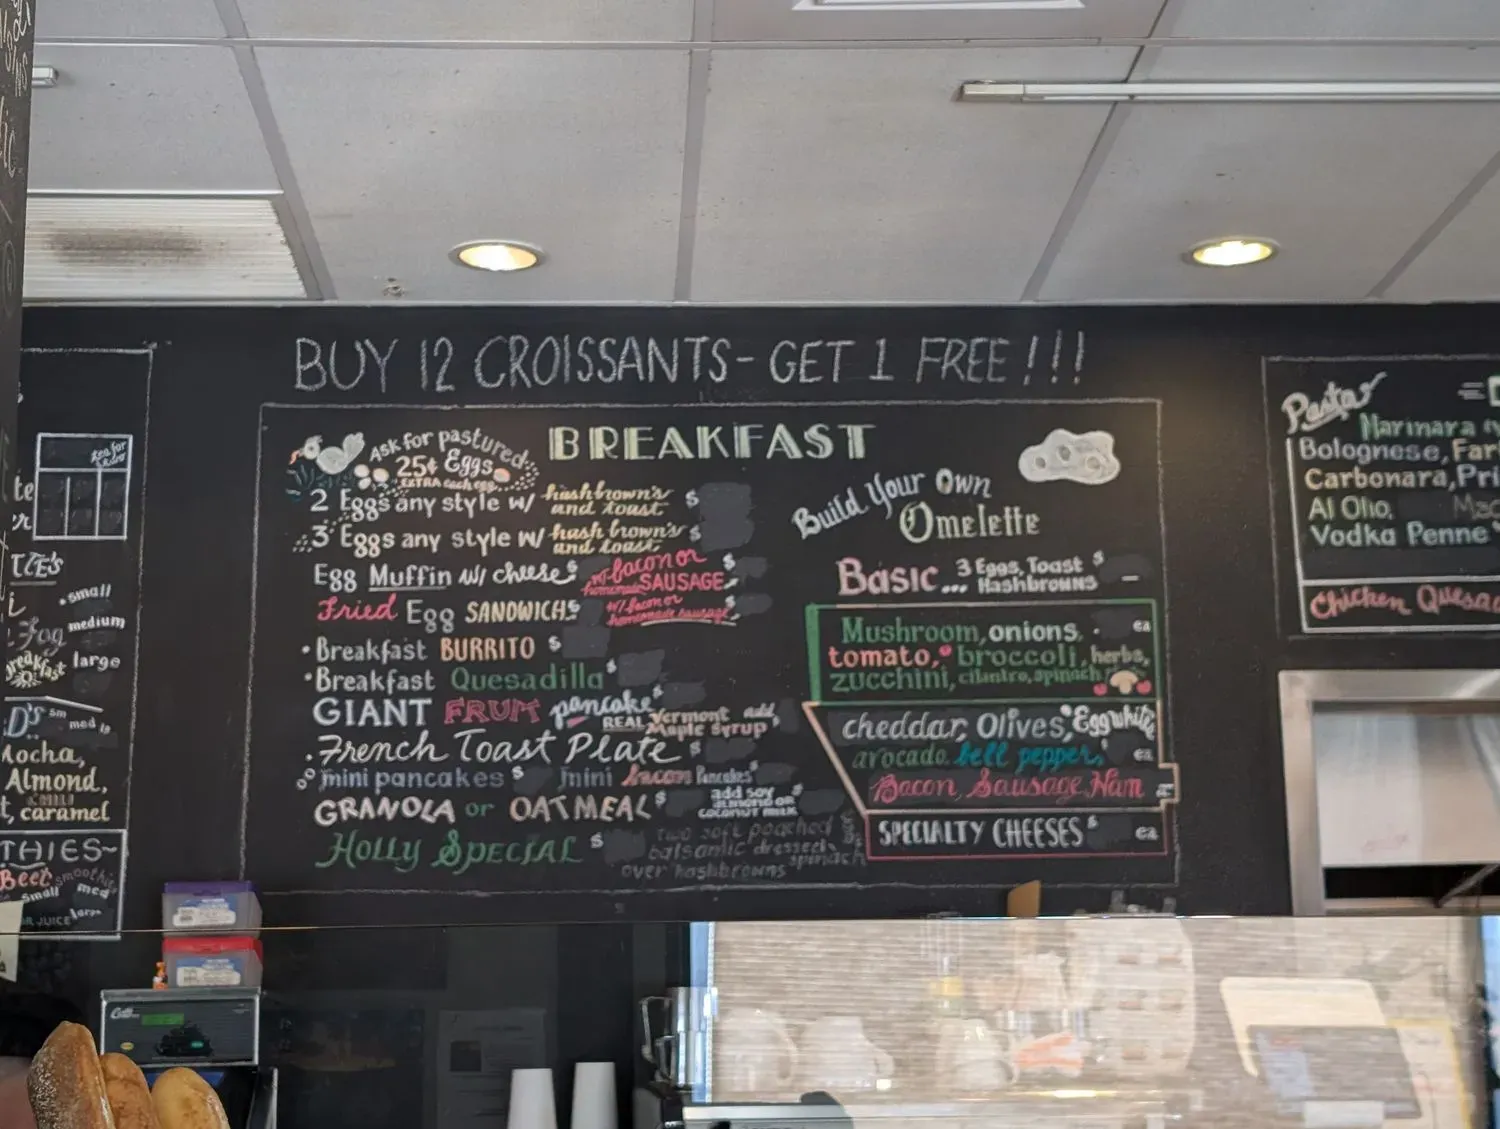 BUY 12 CROISSANTS - GET 1 FREE!!!
BREAKFAST
Ask for pastured
25¢ Eggs
EXTRA each egg
2 Eggs any style w/ hashbrown's and toast $
3 Eggs any style w/ hash brown's and toast $
Egg Muffin w/ cheese $ w/ bacon or homemade SAUSAGE $
Fried Egg SANDWICH $ w/ bacon or homemade sausage $
• Breakfast BURRITO $
• Breakfast Quesadilla $
GIANT FRUIT pancake $
REAL Vermont Maple Syrup add $
• French Toast Plate $
mini pancakes $ mini bacon Pancakes $
GRANOLA or OATMEAL $ add soy almond or coconut milk $
Holly Special $
two soft poached
balsamic dressed spinach
over hashbrowns
Build Your Own
Omelette
Basic... 3 Eggs, Toast Hashbrowns $ –
Mushroom, onions, ea
tomato, broccoli, herbs,
zucchini, cilantro, spinach
cheddar, Olives, Eggwhite
avocado bell pepper, ea
Bacon, Sausage, Ham
SPECIALTY CHEESES $ ea
Pasta
Marinara
Bolognese,
Carbonara,
Al Olio,
Vodka Penne
Chicken
small
medium
large
sm med lg
Mocha,
Almond,
caramel
THIES~
Beet smoothie
small med
large
JUICE